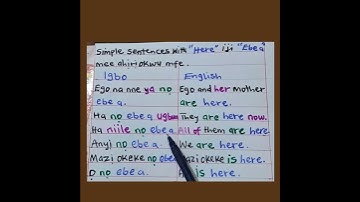 Simple Sentences with "Here" iji "Ebe a"
mee ahiriokwu mfe.
Igbo English
Ego na nne ya nọ Ego and her mother
ebe a. are here.
Ha nọ ebe a ugbu They are here now.
Ha niile nọ ebe a All of them are here
Anyị nọ ebe a. We are here.
Mazi Okeke nọ ebe Mazi Okeke is here.
nọ ebe a. is here.